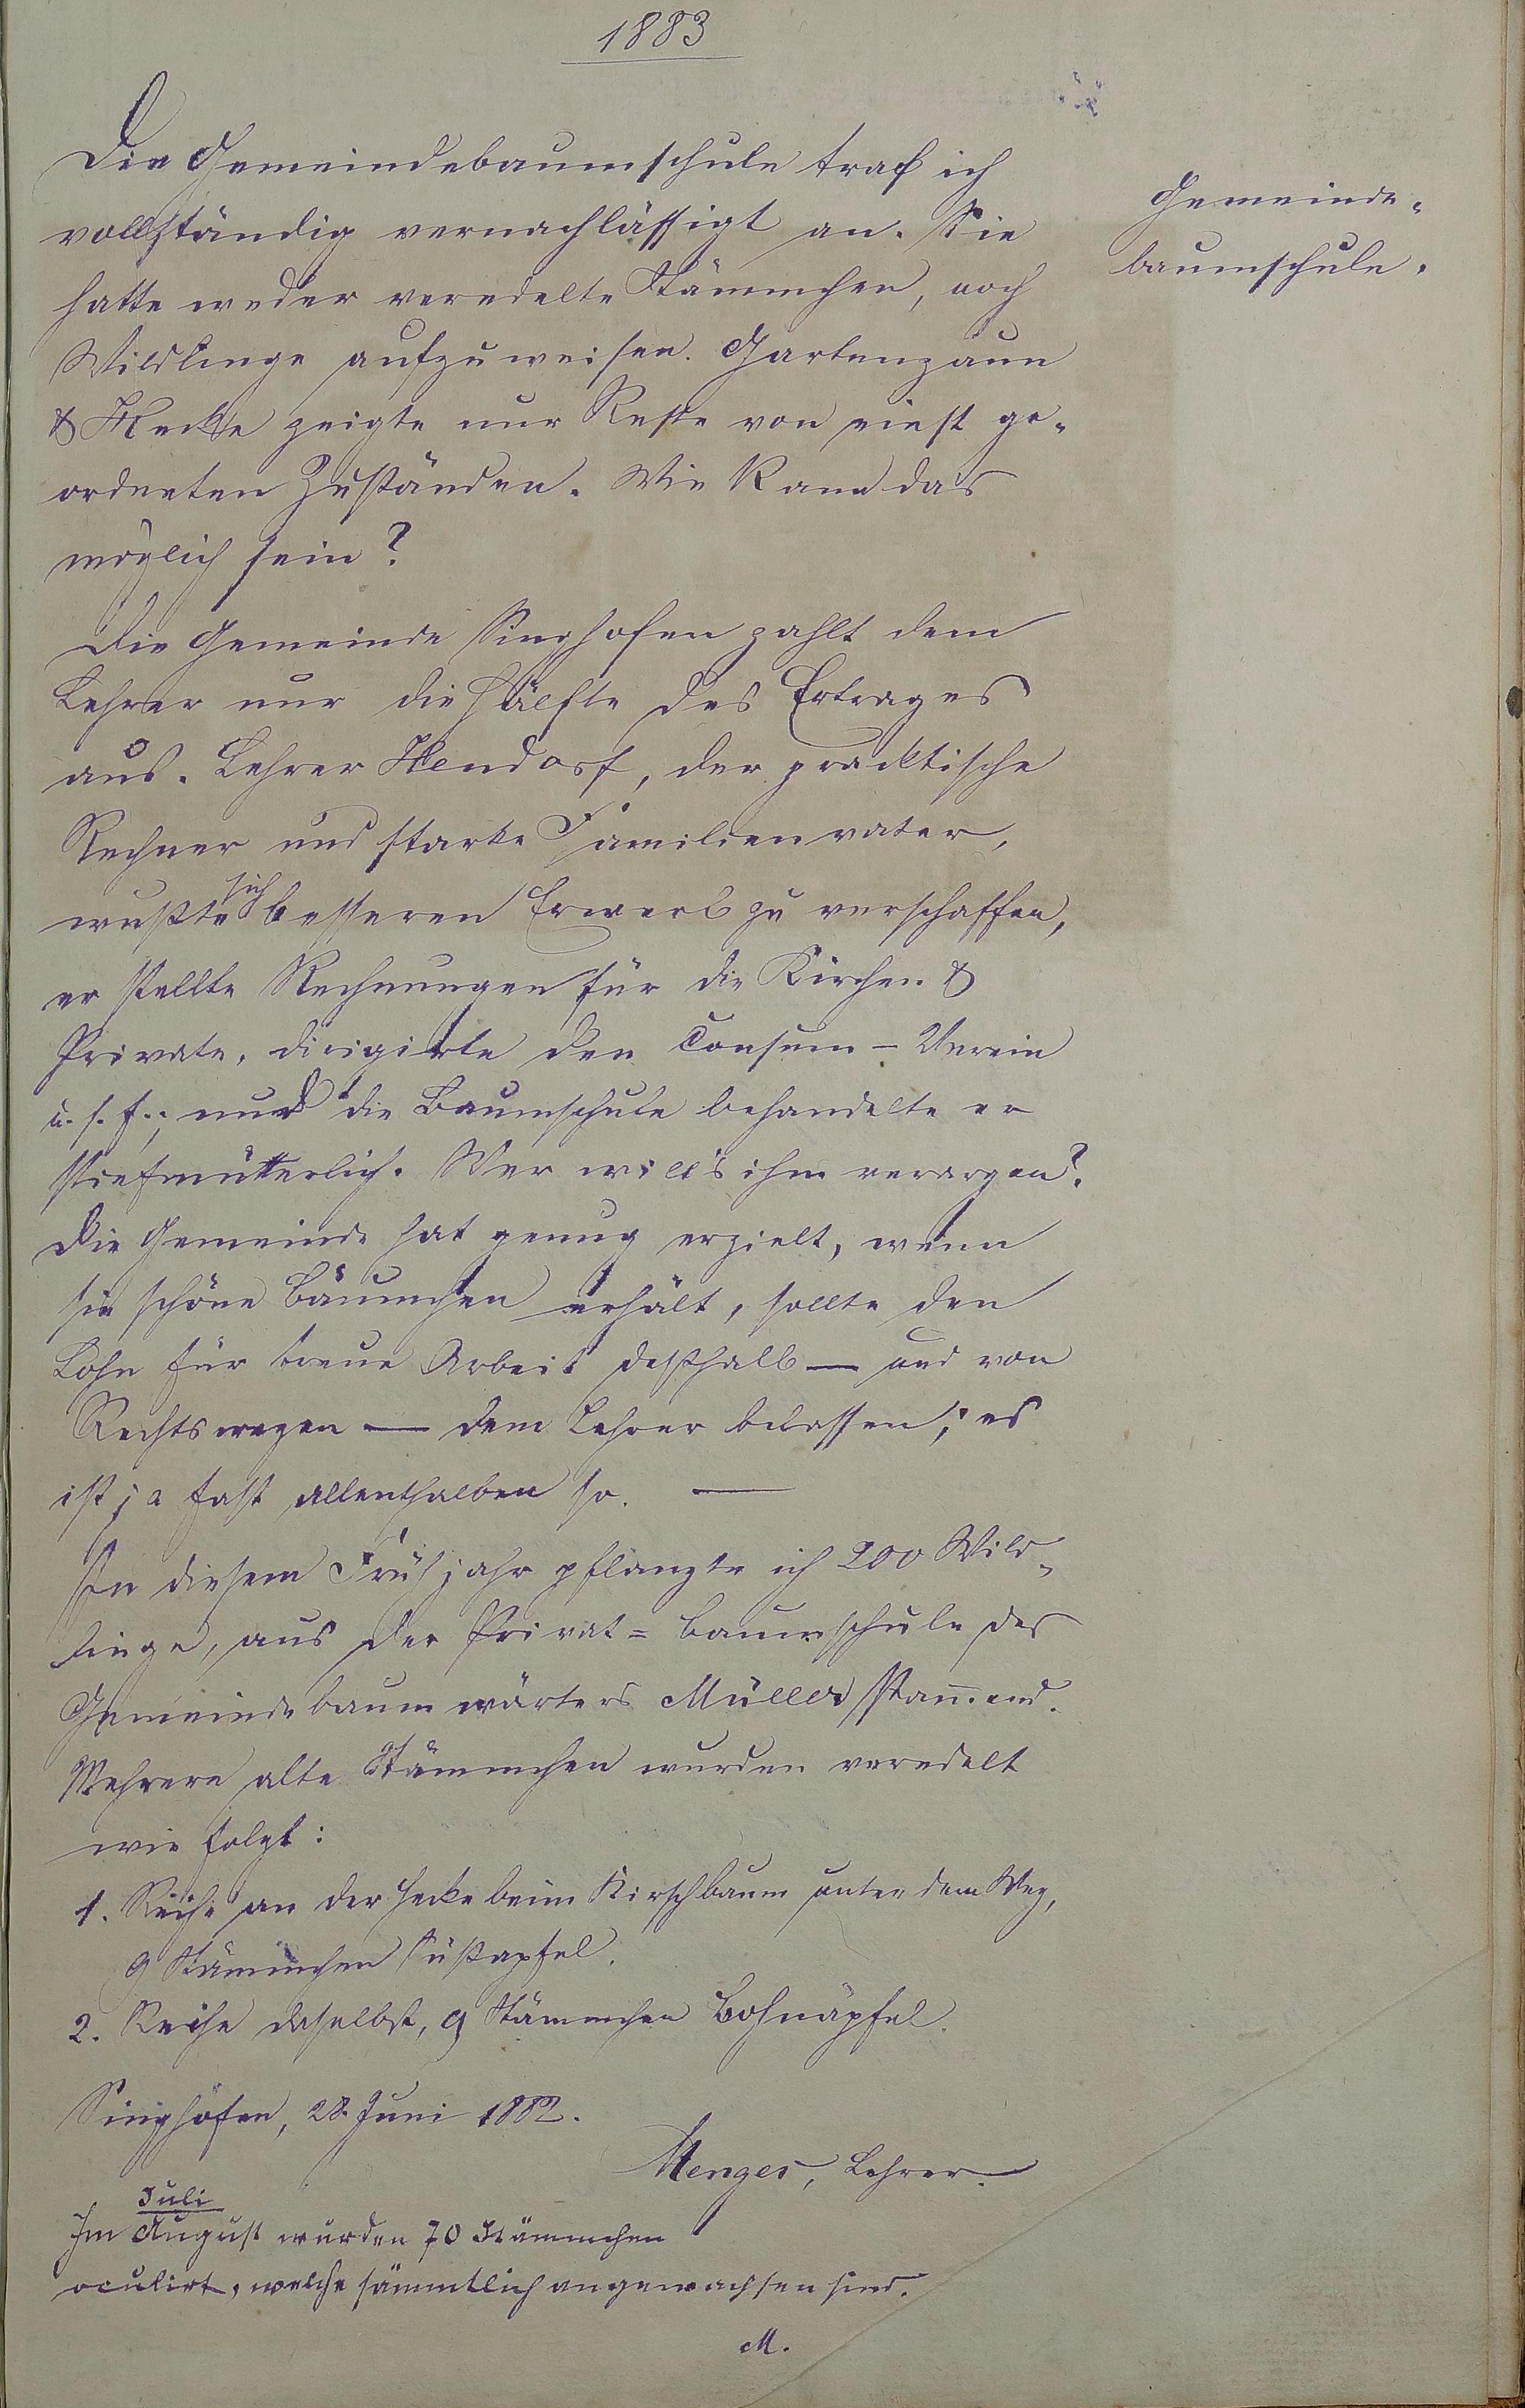 1883
Die Gemeindebaumschule traf ich
vollständig vernachlässigt an. Sie
hatte weder veredelte Stämmchen, noch
Wildlinge aufzuweisen. Gartenzaun
& Hecke zeigte nur Reste von einst ge-
ordneten Zuständen. Wie kann das
möglich sein?
Gemeinde-
baumschule.
Die Gemeinde Singhofen zahlt dem
Lehrer nur die Hälfte des Ertrages
aus. Lehrer Hendorf, der practtische
Rechner und starke Familienvater,
wußte sich besseren Erwerb zu verschaffen,
er stellte Rechnungen für die Kirchen &
Private, dirigirte den Consum-Verein
u. s. f.; und die Baumschule behandelte er
stiefmütterlich. Wer will's ihm verargen?
Die Gemeinde hat genug erzielt, wenn
sie schöne Bäumchen erhält, sollte den
Lohn für treue Arbeit deßhalb — und von
Rechtswegen — dem Lehrer belassen; es
ist ja fast allenthalben so. —
In diesem Frühjahr pflanzte ich 200 Wild-
linge, aus der Privat-Baumschule des
Gemeindebaumwärters Müller stam̄end.
Mehrere alte Stämmchen wurden veredelt
wie folgt:
1. Reihe an der Hecke beim Kirschbaum unter dem Weg,
9 Stämmchen Süßapfel.
2. Reihe daselbst, 9 Stämmchen Bohnäpfel.
Singhofen, 28. Juni 1882.
Menges, Lehrer.
Juli
Im August wurden 70 Stämmchen
oculirt, welche sämmtlich angewachsen sind.
M.